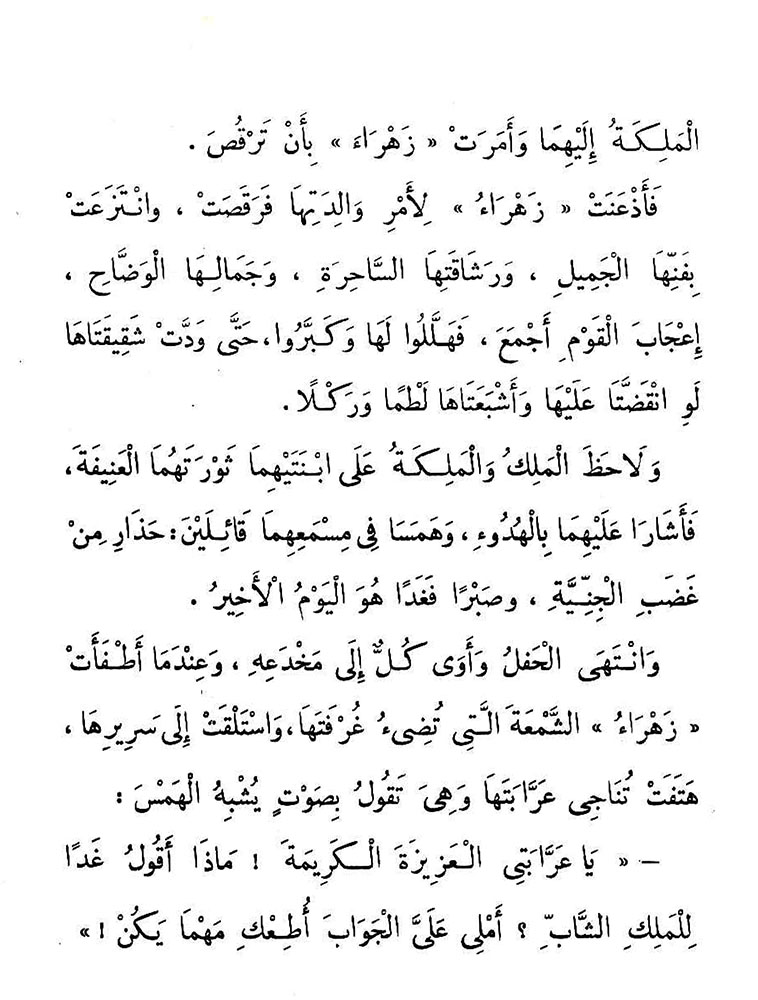 الْمَلِكَةُ إِلَيْهِمَا وَأَمَرَتْ « زَهْرَاءَ » بِأَنْ تَرْقُصَ .
فَأَذْعَنَتْ « زَهْرَاءُ » لِأَمْرِ وَالِدَتِهَا فَرَقَصَتْ ، وانْتَزَعَتْ
بِفَنِّهَا الْجَمِيلِ ، وَرَشَاقَتِهَا السَّاحِرَةِ ، وَجَمَالِهَا الْوَضَّاحِ ،
إِعْجَابَ الْقَوْمِ أَجْمَعَ ، فَهَلَّلُوا لَهَا وَكَبَّرُوا، حَتَّى وَدَّتْ شَقِيقَتَاهَا
لَوِ انْقَضَّتَا عَلَيْهَا وَأَشْبَعَتَاهَا لَطْمًا وَرَكْلًا.
وَلَاحَظَ الْمَلِكُ وَالْمَلِكَةُ عَلَى ابْنَتَيْهِمَا ثَوْرَتَهُمَا الْعَنِيفَةَ،
فَأَشَارَا عَلَيْهِمَا بِالْهُدُوءِ، وَهَمَسَا فِى مِسْمَعِهِمَا قَائِلَيْنَ: حَذَارِ مِنْ
غَضَبِ الْجِنِّيَّةِ ، وصَبْرًا فَغَدًا هُوَ الْيَوْمُ الْأَخِيرُ .
وَانْتَهَى الْحَفلُ وَأَوَى كُلٌّ إِلَى مَخْدَعِهِ ، وَعِنْدَمَا أَطْفَأَتْ
« زَهْرَاءُ » الشَّمْعَةَ الَّتِى تُضِىءُ غُرْفَتَهَا، وَاسْتَلْقَتْ إِلَى سَرِيرِهَا ،
هَتَفَتْ تُنَاجِى عَرَّابَتَهَا وَهِىَ تَقُولُ بِصَوْتٍ يُشْبِهُ الْهَمْسَ :
– « يَا عَرَّابَتِى الْعَزِيزَةَ الْكَرِيمَةَ ! مَاذَا أَقُولُ غَدًا
لِلْمَلِكِ الشَّابِّ ؟ أَمْلِى عَلَىَّ الْجَوَابَ أُطِعْكِ مَهْمَا يَكُنْ ! »